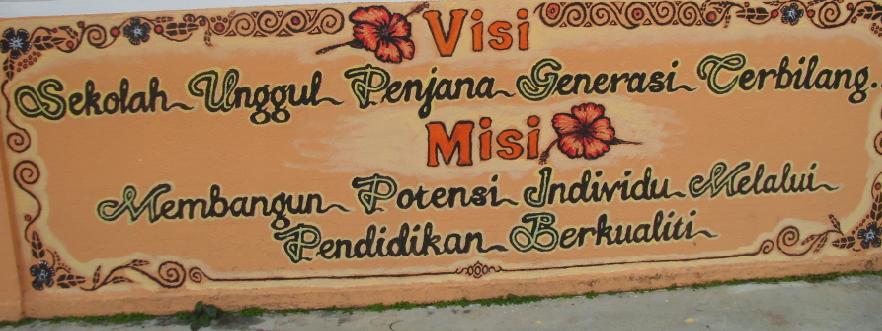 Visi
Sekolah Unggul Penjana Generasi Terbilang..
Misi
Membangun Potensi Individu Melalui
Pendidikan Berkualiti